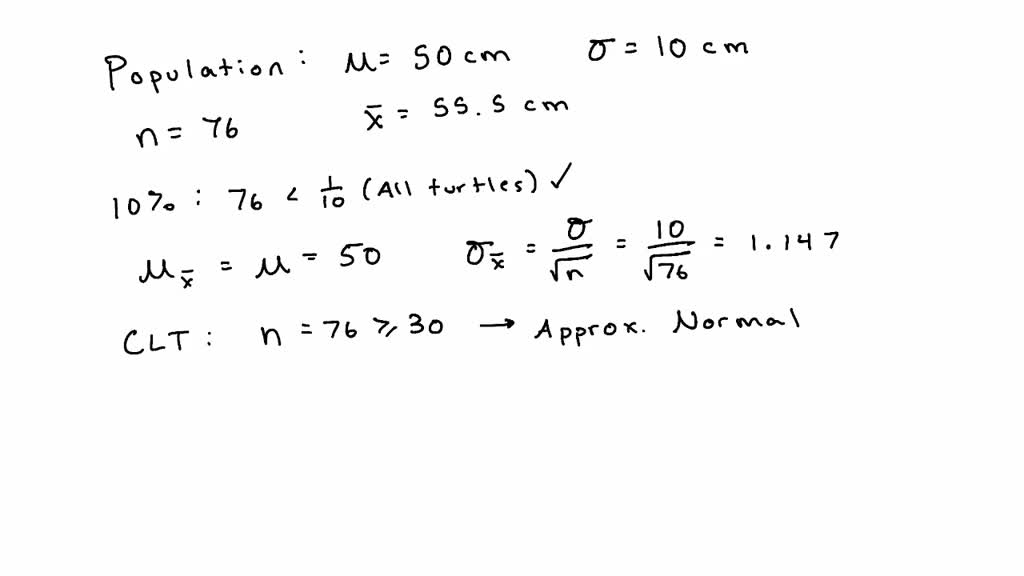 Population: μ = 50 cm σ = 10 cm
n = 76 x̄ = 55.5 cm
10% : 76 < 1/10 (All turtles) ✓
μx̄ = μ = 50 σx̄ = σ/√n = 10/√76 = 1.147
CLT : n = 76 ≥ 30 → Approx. Normal